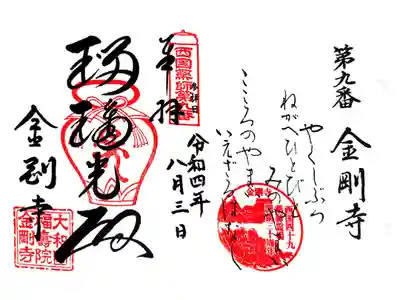 第九番 金剛寺
やくしぶつ
ねがへひとびと
みのやまい
こころのやまい
いえざるはなし
奉拝
令和四年
八月三日
瑠璃光殿
金剛寺
大和
福壽院
金剛寺